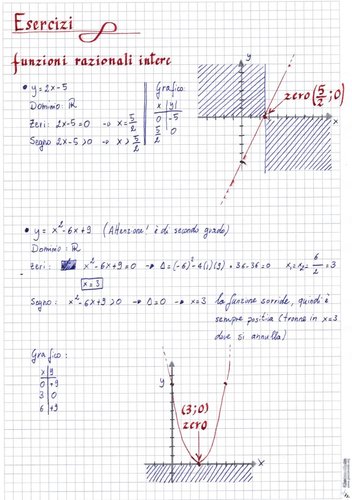 Esercizi
funzioni razionali intere
• y=2x-5
Dominio: ℝ
Zeri: 2x-5=0 → x=5/2
Segno 2x-5>0 → x>5/2
Grafico:
x | y
0 | -5
5/2 | 0
y
zero (5/2; 0)
x
• y = x²-6x+9 (Attenzione! è di secondo grado)
Dominio: ℝ
Zeri: x²-6x+9=0 → Δ=(-6)²-4(1)(9) = 36-36=0 x₁=x₂= 6/2 =3
x=3
Segno: x²-6x+9>0 → Δ=0 → x=3 la funzione sorride, quindi è
sempre positiva (tranne in x=3
dove si annulla)
Grafico:
x | y
0 | +9
3 | 0
6 | +9
y
(3;0)
zero
x